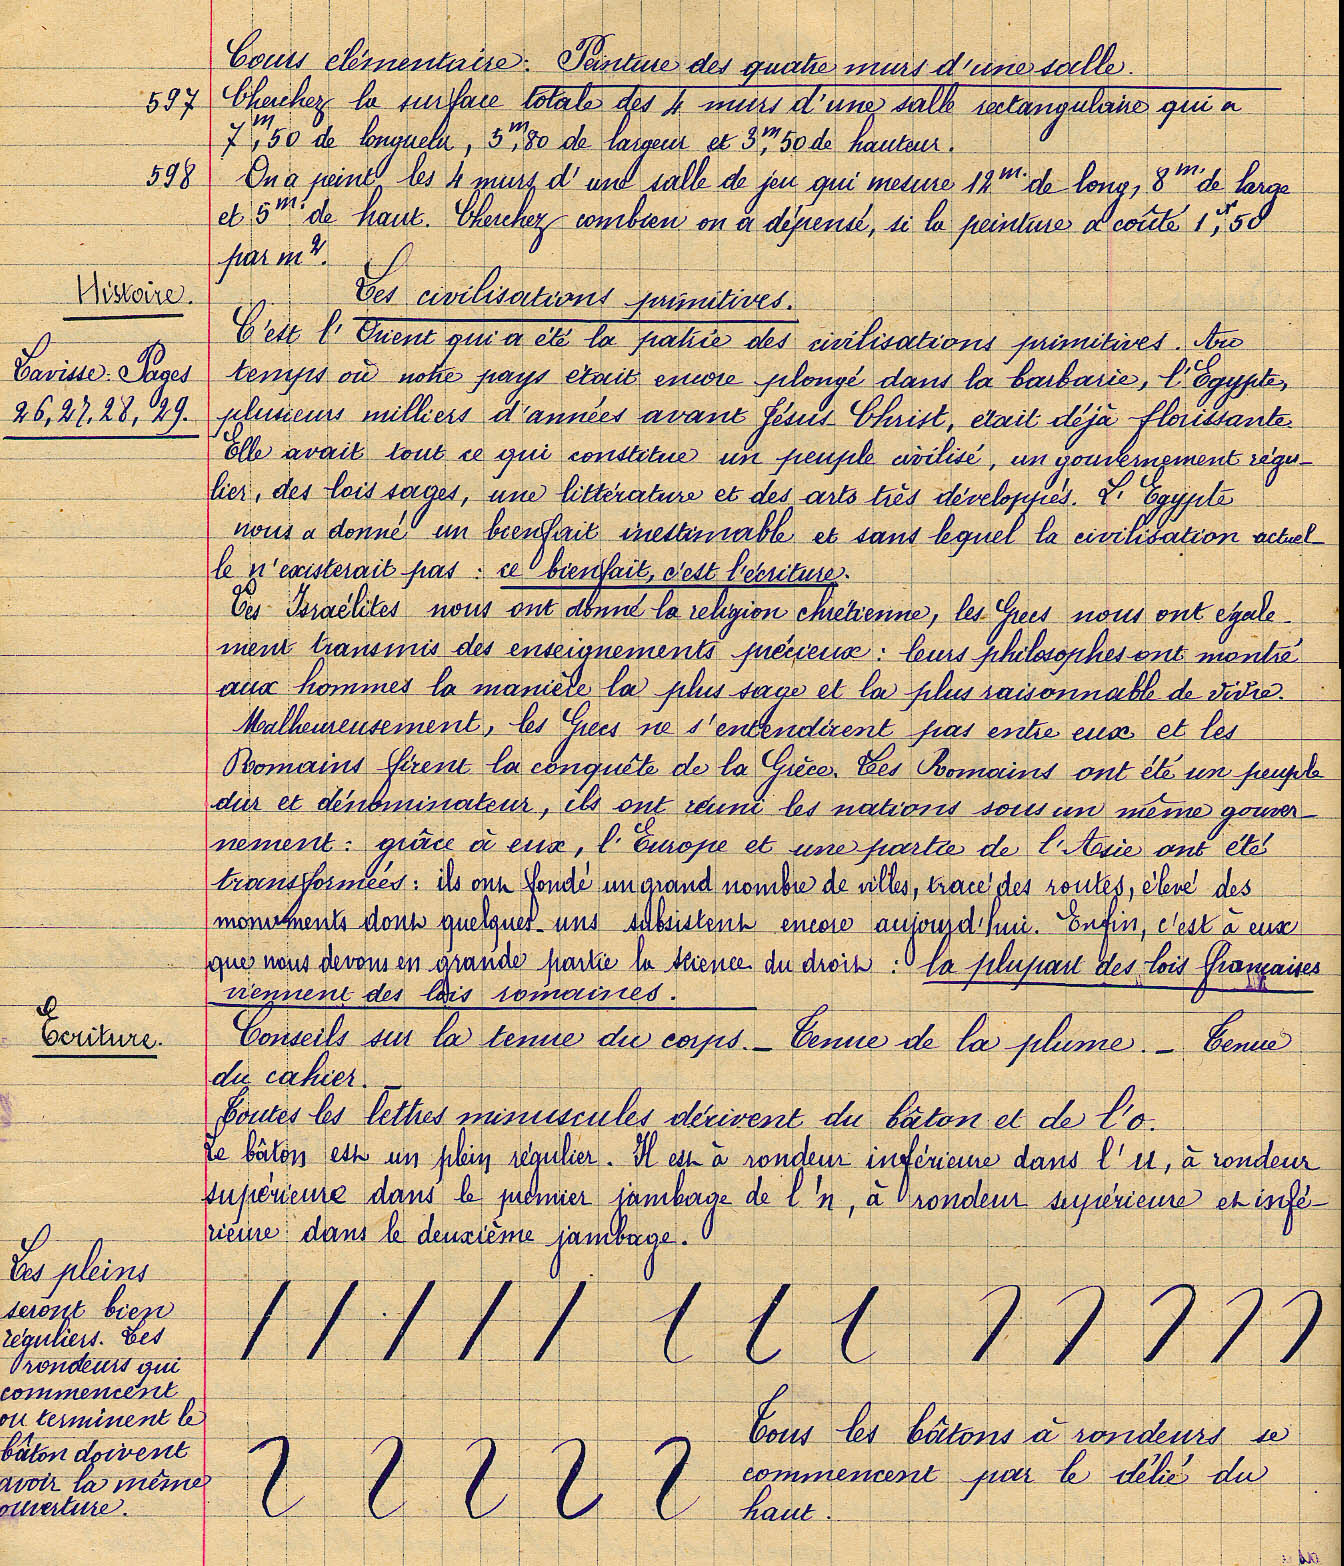 Cours élémentaire: Peinture des quatre murs d'une salle.
597 Cherchez la surface totale des 4 murs d'une salle rectangulaire qui a
7m,50 de longueur, 5m,80 de largeur et 3m,50 de hauteur.
598 On a peint les 4 murs d'une salle de jeu qui mesure 12m. de long, 8m. de large
et 5m. de haut. Cherchez combien on a dépensé, si la peinture a coûté 1fr,50
par m2.
Histoire.
Les civilisations primitives.
C'est l'Orient qui a été la patrie des civilisations primitives. Au
Lavisse: Pages
26, 27, 28, 29.
temps où notre pays était encore plongé dans la barbarie, l'Egypte,
plusieurs milliers d'années avant Jésus-Christ, était déjà florissante.
Elle avait tout ce qui constitue un peuple civilisé, un gouvernement régu-
lier, des lois sages, une littérature et des arts très développés. L'Egypte
nous a donné un bienfait inestimable et sans lequel la civilisation actuel-
le n'existerait pas : ce bienfait, c'est l'écriture.
Les Israélites nous ont donné la religion chrétienne, les Grecs nous ont égale-
ment transmis des enseignements précieux : leurs philosophes ont montré
aux hommes la manière la plus sage et la plus raisonnable de vivre.
Malheureusement, les Grecs ne s'entendirent pas entre eux et les
Romains firent la conquête de la Grèce. Les Romains ont été un peuple
dur et dénominateur, ils ont réuni les nations sous un même gouver-
nement : grâce à eux, l'Europe et une partie de l'Asie ont été
transformées : ils ont fondé un grand nombre de villes, tracé des routes, élevé des
monuments dont quelques-uns subsistent encore aujourd'hui. Enfin, c'est à eux
que nous devons en grande partie la science du droit : la plupart des lois françaises
viennent des lois romaines.
Ecriture.
Conseils sur la tenue du corps. - Tenue de la plume. - Tenue
du cahier. -
Toutes les lettres minuscules dérivent du bâton et de l'o.
Le bâton est un plein régulier. Il est à rondeur inférieure dans l'u, à rondeur
supérieure dans le premier jambage de l'n, à rondeur supérieure et infé-
rieure dans le deuxième jambage.
Les pleins
seront bien
réguliers. Les
rondeurs qui
commencent
ou terminent le
bâton doivent
avoir la même
ouverture.
Tous les bâtons à rondeurs se
commencent par le délié du
haut.